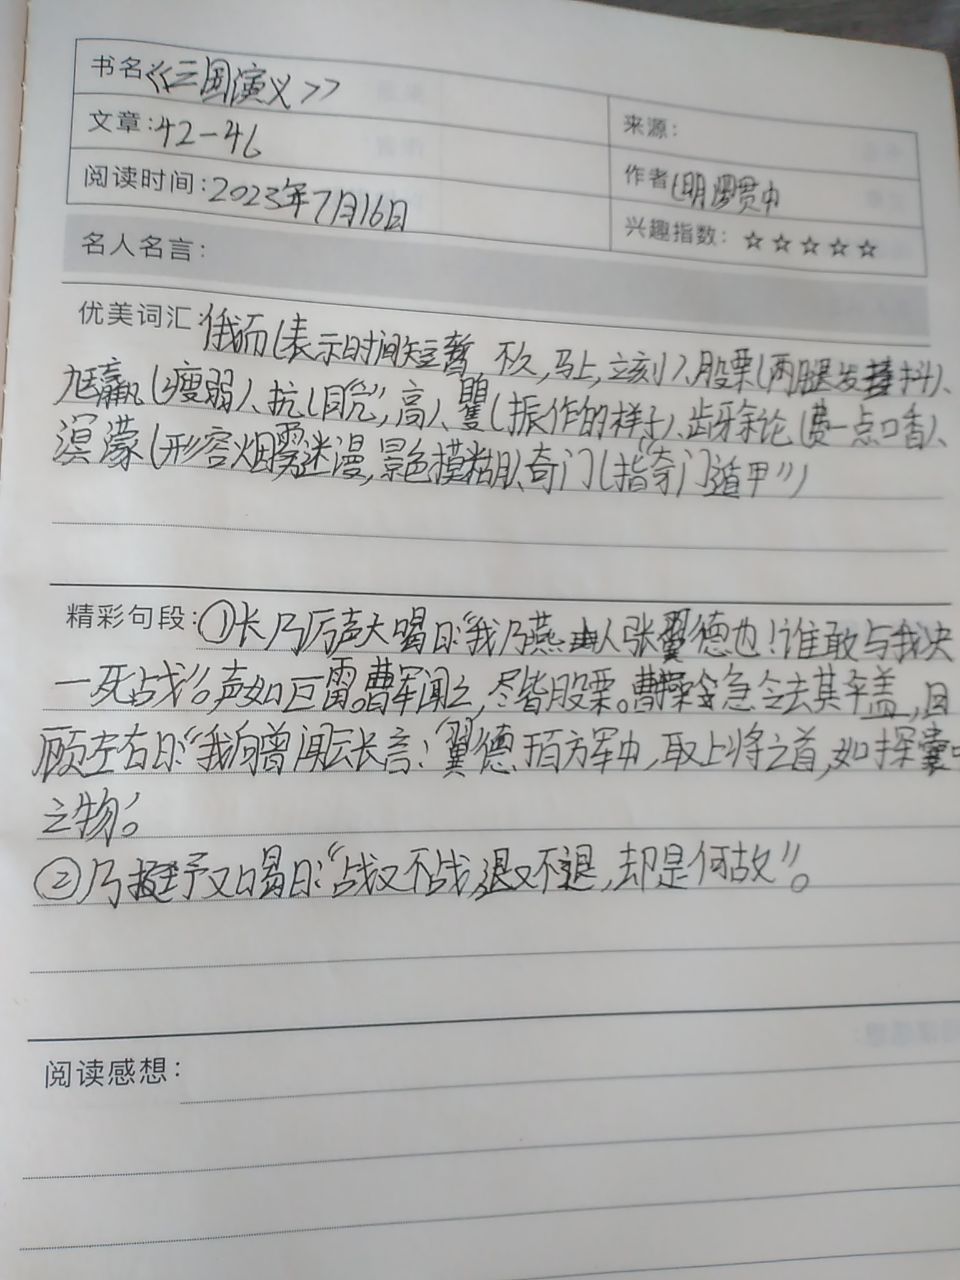 书名《三国演义》
文章:42-46
来源:
阅读时间:2023年7月16日
作者(明)罗贯中
兴趣指数:☆☆☆☆☆
名人名言:
优美词汇:俄而(表示时间短暂,不久,马上,立刻)、股栗(两腿发抖)、
尪羸(瘦弱)、抗(同"亢",高)、矍(振作的样子)、齿牙余论(费一点口香)、
溟濛(形容烟雾迷漫,景色摸糊)、奇门(指"奇门遁甲")
精彩句段:①长乃厉声大喝曰:"我乃燕人张翼德也!谁敢与我决
一死战"。声如巨雷。曹军闻之,尽皆股栗。曹操急令去其伞盖,回
顾左右曰:"我向曾闻云长言:翼德百万军中,取上将之首,如探囊中
之物。"
②乃挺矛又喝曰:"战又不战,退又不退,却是何故"。
阅读感想: